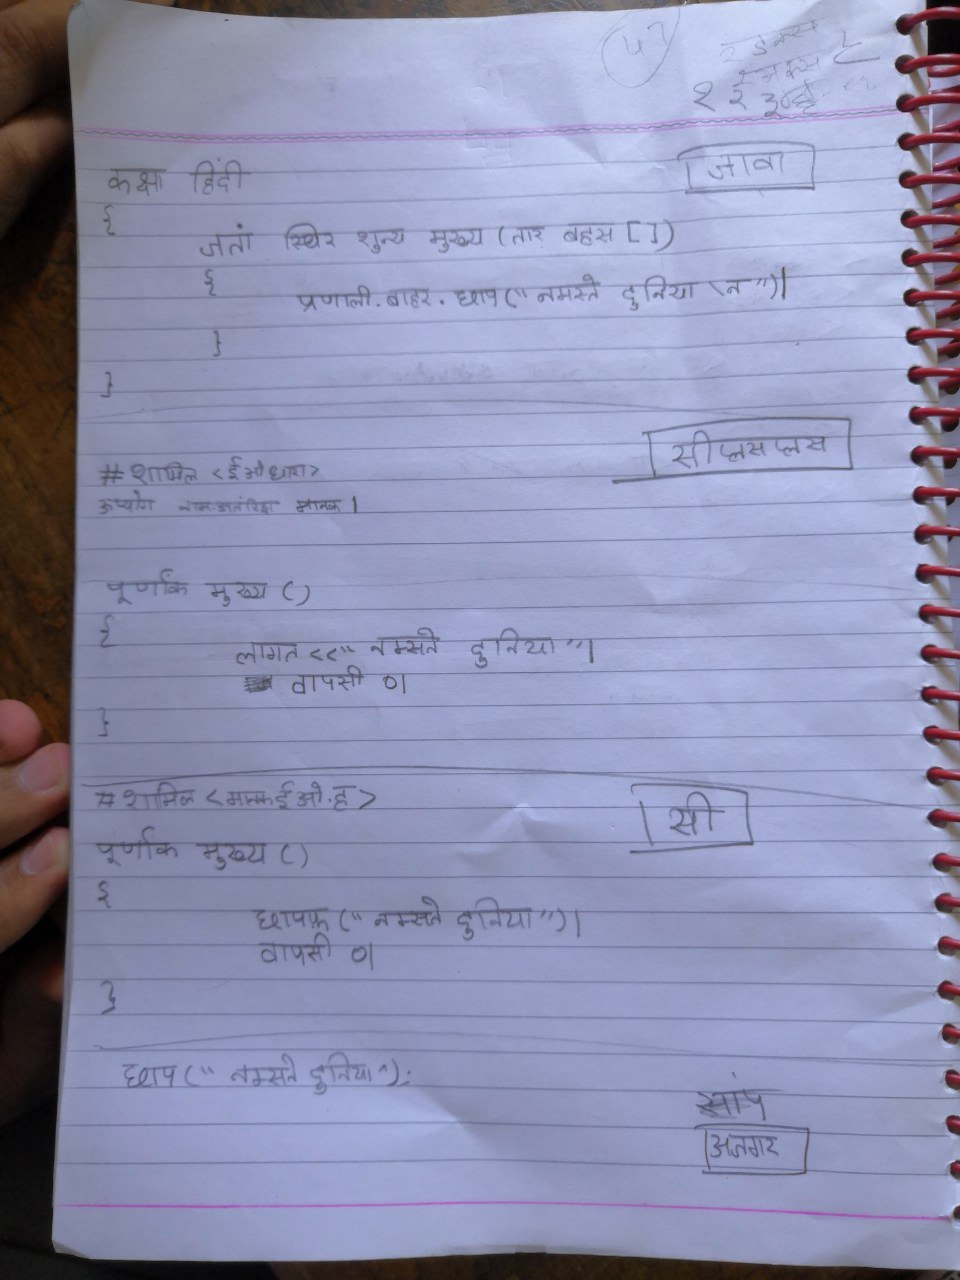 जावा
कक्षा हिंदी
{
जतां स्थिर शुन्य मुख्य (तार बहस [])
{
प्रणाली.बाहर.छाप("नमस्ते दुनिया \न")|
}
}
सीप्लसप्लस
#शामिल <ईओधारा>
उपयोग नाम-अतंरिक्ष मानक |
पूर्णांक मुख्य ()
{
लागत <<"नम्सते दुनिया"|
वापसी ०|
}
सी
#शामिल <मानकईओ.ह>
पूर्णांक मुख्य ()
{
छापफ़ ("नम्सते दुनिया")|
वापसी ०|
}
छाप ("नम्सते दुनिया");
सांप
अजगर